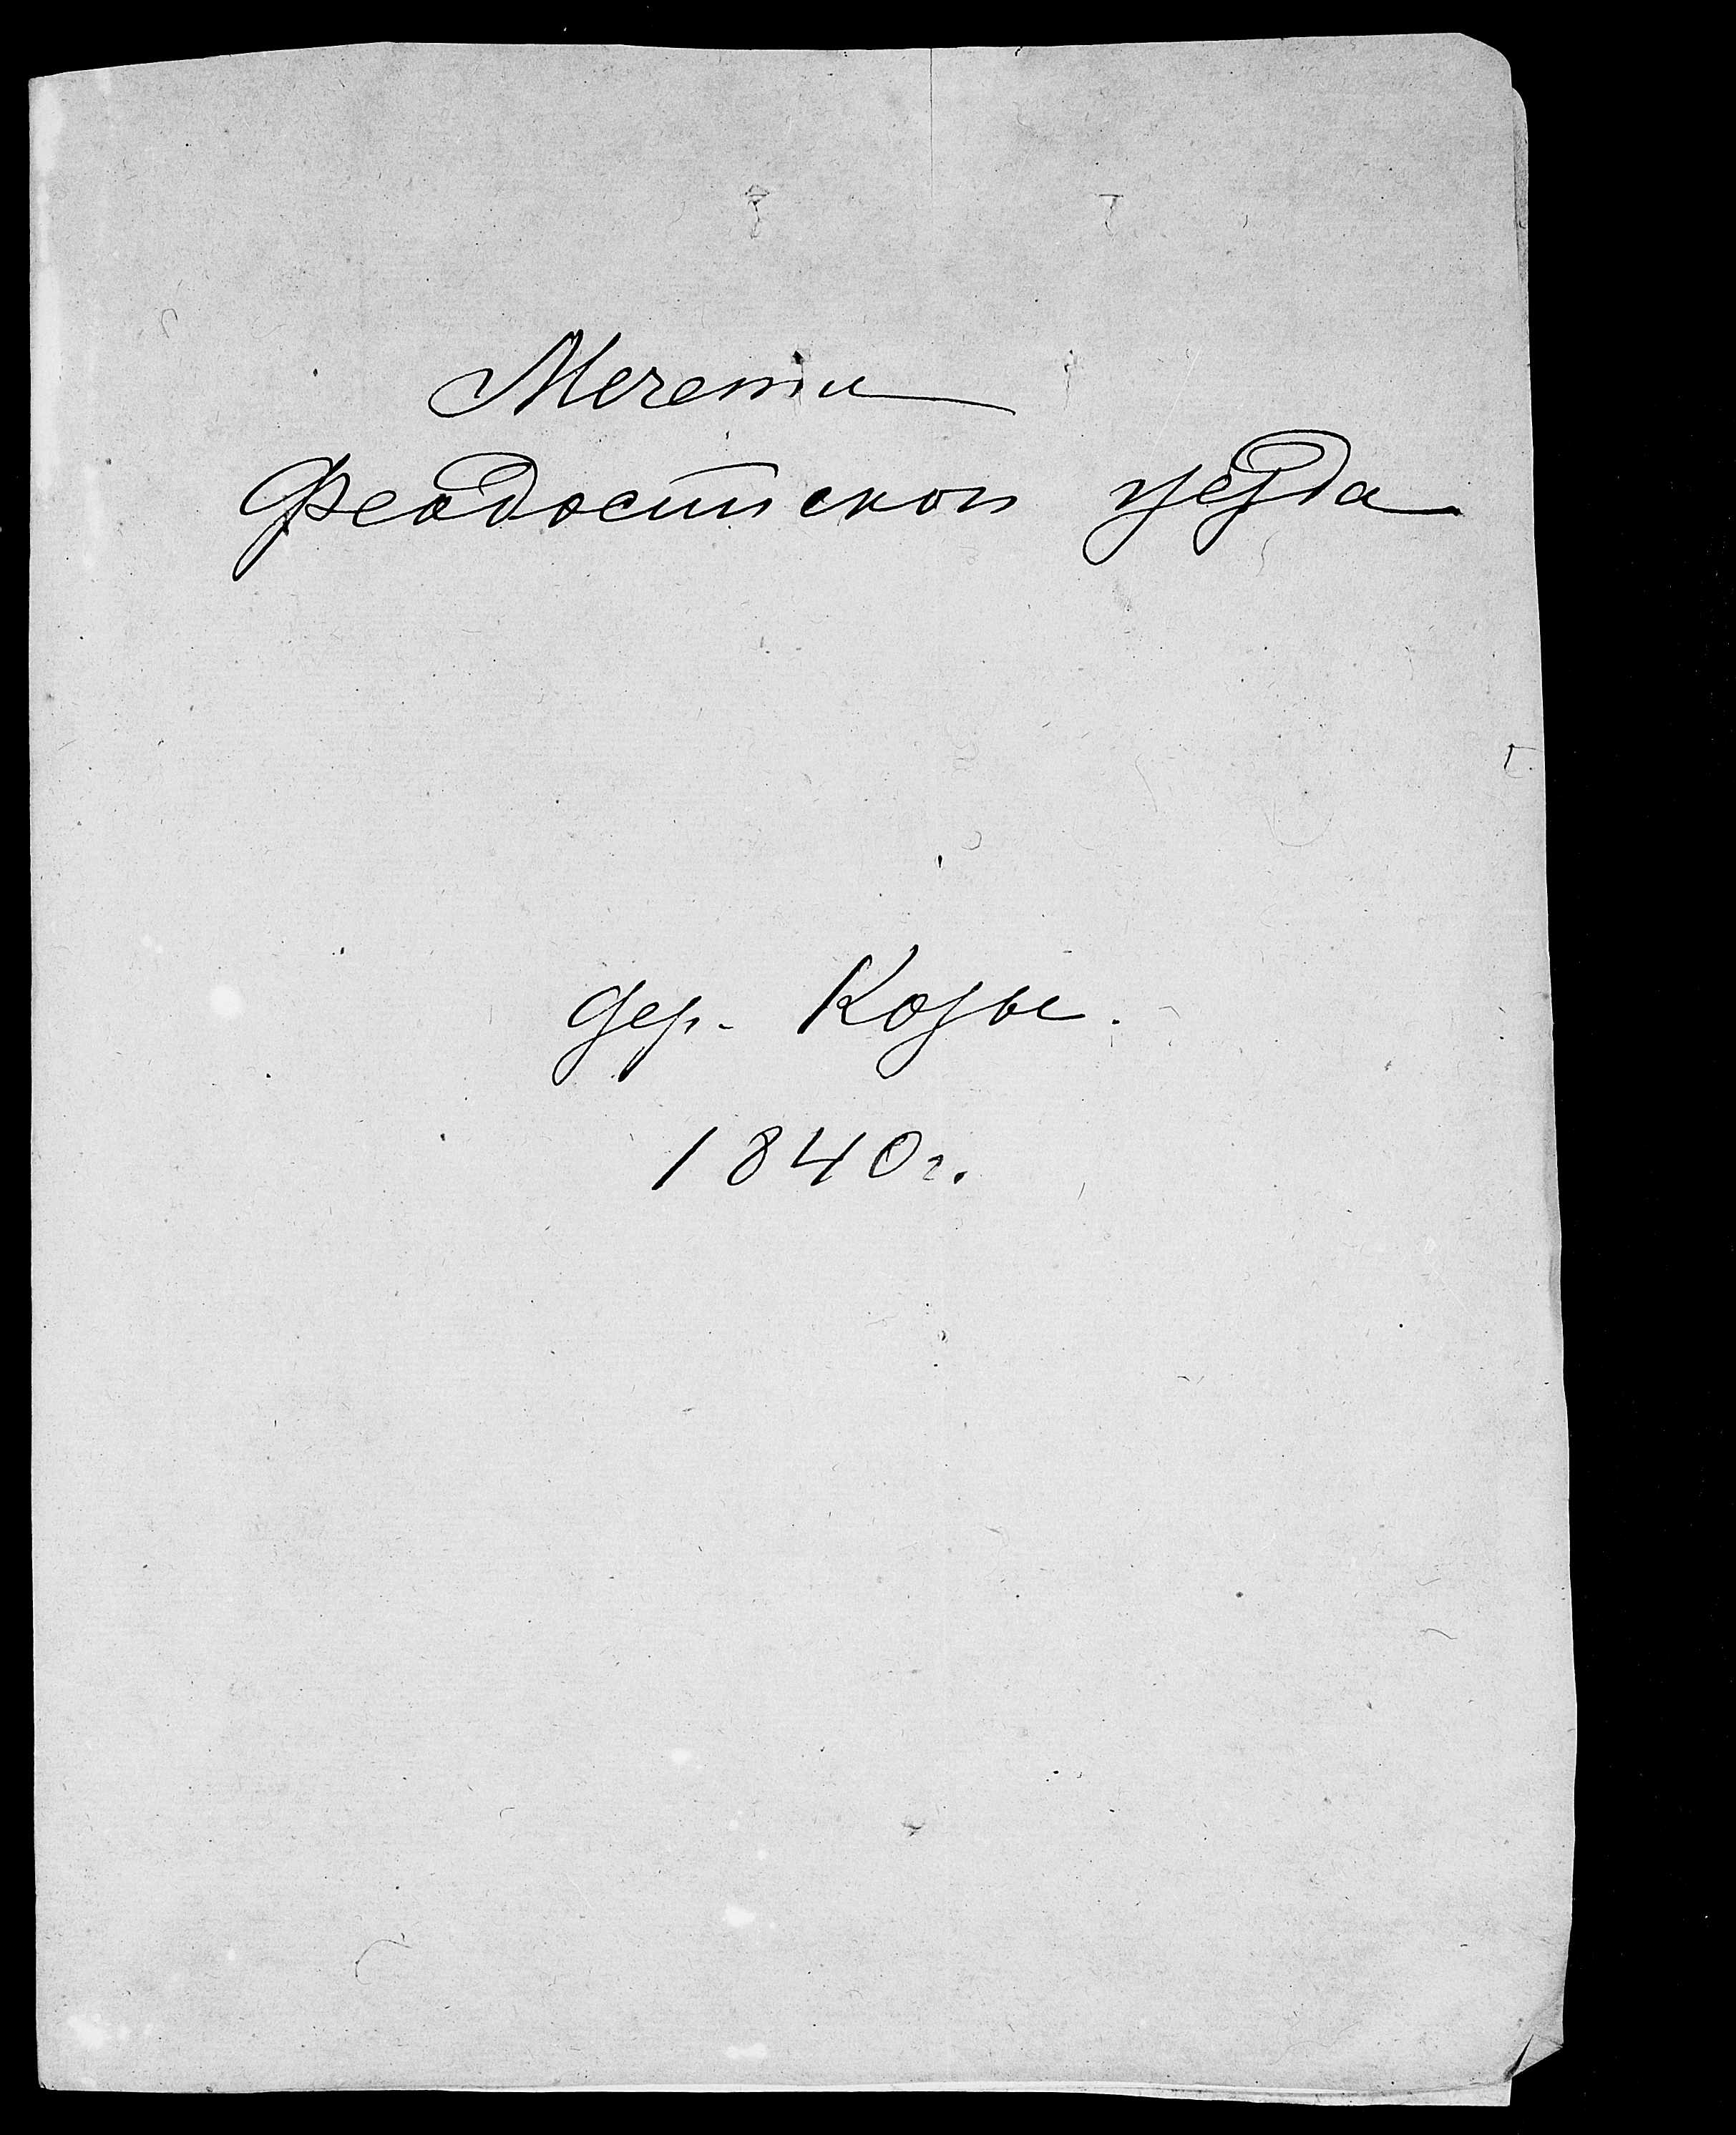 Мечети
Феодосийской уезда
дер. Козы.
1840 г.